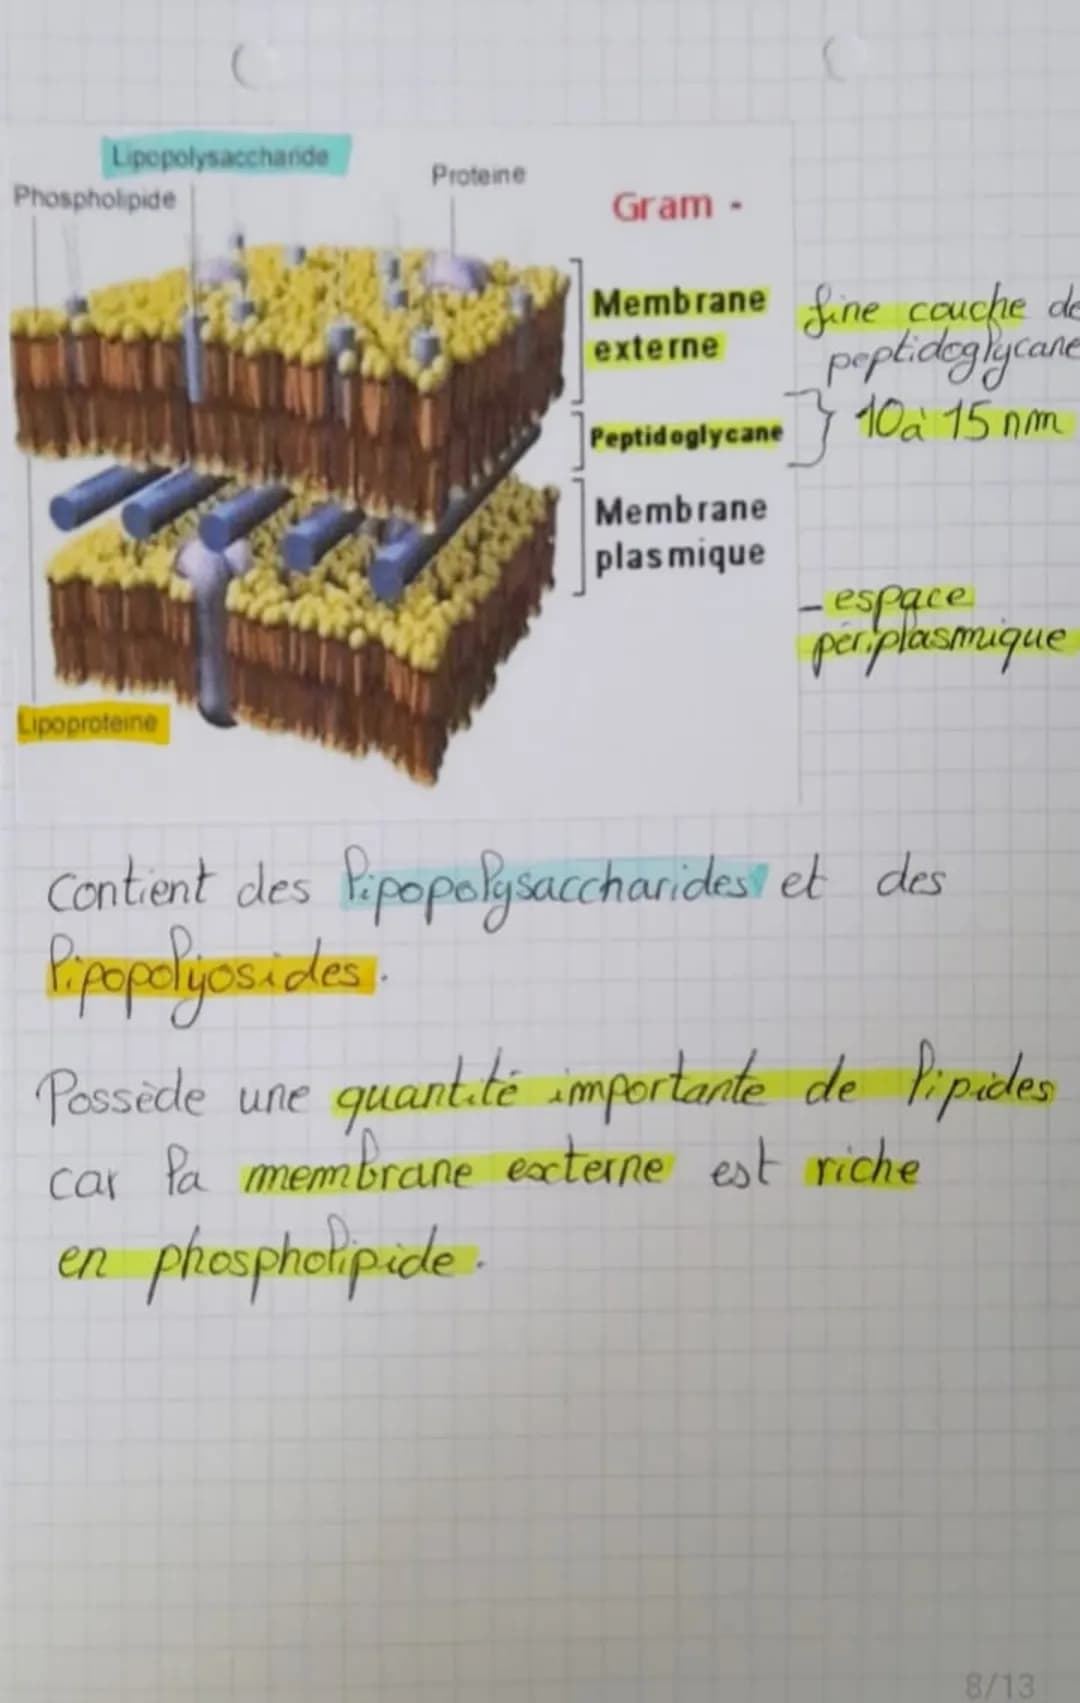 Lipopolysaccharide
Phospholipide
Proteine
Gram -
Membrane
externe
Peptidoglycane
Membrane
plasmique
Lipoproteine
fine couche de
peptidoglycane
} 10 à 15 nm
- espace
périplasmique
Contient des lipopolysaccharides et des
lipopolyosides.
Possède une quantité importante de lipides
car la membrane externe est riche
en phospholipide.
8/13